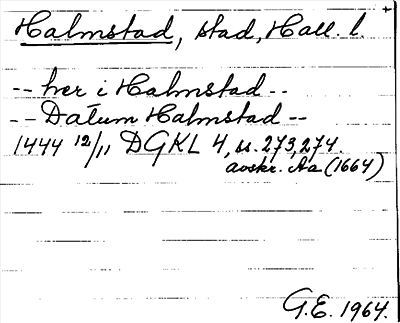 Halmstad, stad, Hall. l.
-- her i Halmstad --
-- Datum Halmstad --
1444 12/11 DGKL 4, s. 273, 274.
avskr. Aa (1664)
G.E. 1964.